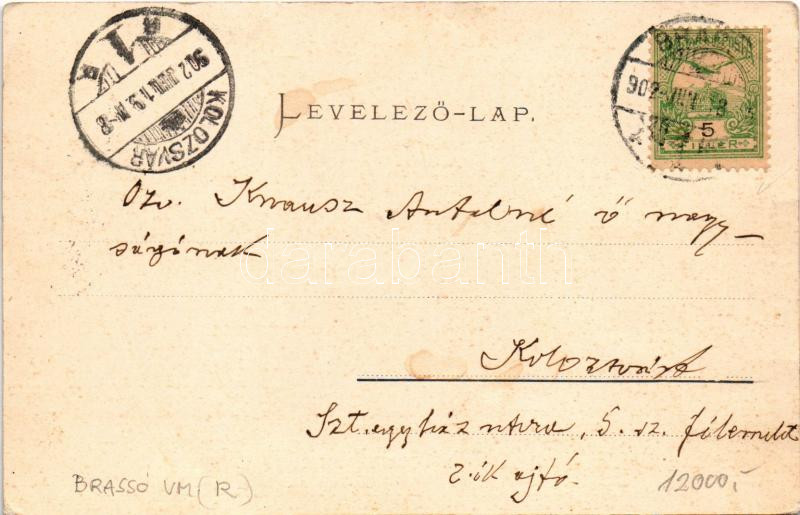 KOLOZSVÁR
902 JUN. 19
LEVELEZŐ-LAP.
5
FILLÉR
Özv. Knausz Antalné ő nagy-
ságának
darabanth
Kolozsvárt
Szt. egyház utca, 5. sz. félemelet
2-ik ajtó.
BRASSÓ VM (R)
12000,-